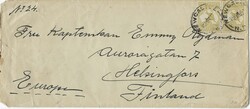 No 24.
Fru Kaptenskan Emmy Rydman
Auroragatan 7
Helsingfors
Finland
Europe